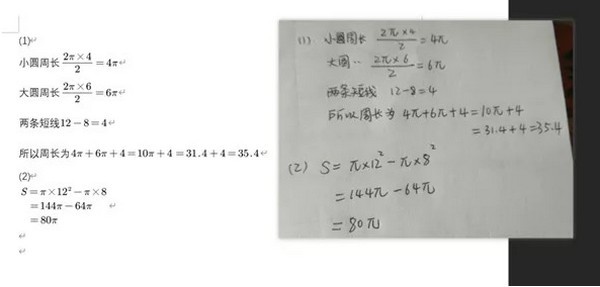 (1)
小圆周长 2π×4/2 = 4π
大圆周长 2π×6/2 = 6π
两条短线12−8=4
所以周长为4π+6π+4=10π+4=31.4+4=35.4
(2)
S=π×12²−π×8
=144π−64π
=80π
(1) 小圆周长 2π×4/2 = 4π
大圆 ‥ 2π×6/2 = 6π
两条短线 12-8=4
所以周长为 4π+6π+4=10π+4
=31.4+4=35.4
(2) S= π×12²-π×8²
=144π-64π
=80π